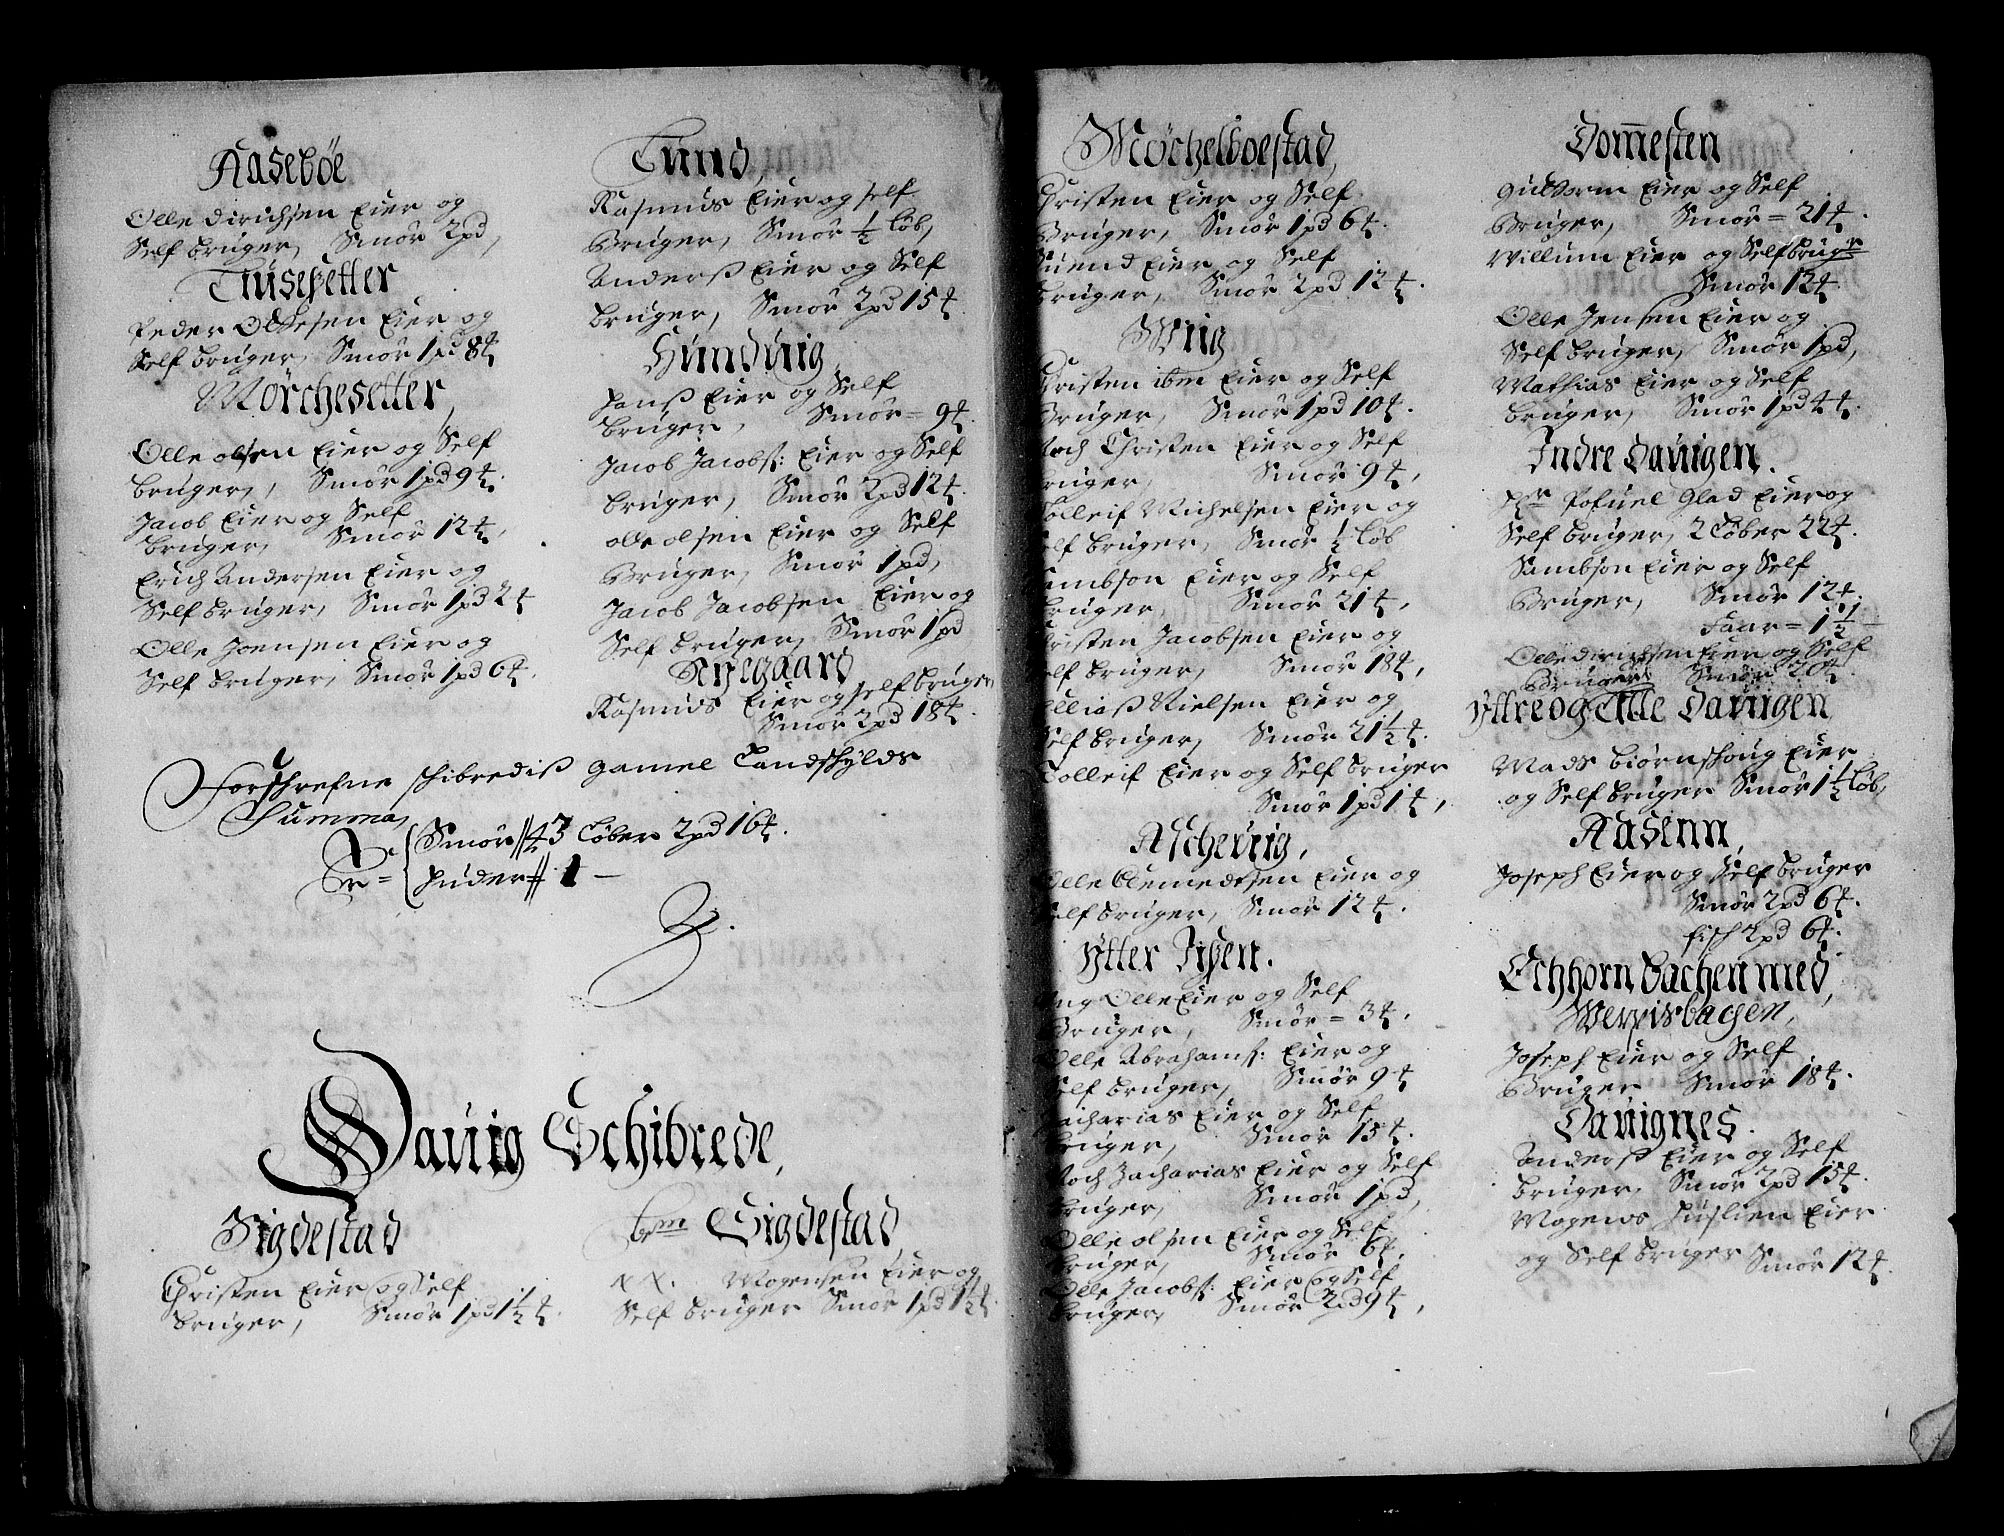 Aasebøe
Olle Dirichsen Eier og
Self bruger, Smör 2 pd,
Tuisesetter
Peder Olsen Eier og
Self bruger, Smör 1 pd 8 ℔
Mörchesetter,
Olle olsen Eier og Self
bruger, Smör 1 pd 9 ℔.
Jacob Eier og Self
bruger, Smör 12 ℔,
Erich Andersen Eier og
Self bruger, Smör 1 pd 2 ℔
Olle Joensen Eier og
Self bruger, Smör 1 pd 6 ℔.
Lund,
Rasmus Eier og self
Bruger, Smör ½ Løb,
Anderß Eier og Self
bruger, Smör 2 pd 15 ℔.
Hundvig
Hanß Eier og Self
bruger, Smör = 9 ℔.
Jacob Jacobs: Eier og Self
bruger, Smör 2 pd 12 ℔.
olle olsen Eier og Self
Bruger, Smör 1 pd,
Jacob Jacobsen Eier og
Self bruger, Smör 1 pd
Ryegaard
Rasmus Eier og self bruger
Smör 2 pd 18 ℔.
Forschrefne schibrediß gamel Landschylds
Summa,
Er = Smör // 43 Løber 2 pd 16 ℔.
Huder // 1 —
Dauig Schibrede,
Sigdestad
Christen Eier og Self
bruger, Smör 1 pd 1½ ℔.
Sigdestad
Mogensen Eier og
Self bruger Smör 1 pd 1½ ℔.
Möchelboestad,
Christen Eier og Self
Bruger, Smör 1 pd 6 ℔.
Suend Eier og Self
bruger, Smör 2 pd 12 ℔.
Wiig
Christen ibm Eier og Self
Bruger, Smör 1 pd 10 ℔.
Noch Christen Eier og Self
bruger, Smör 9 ℔,
Tolleif Michelsen Eier og
Self bruger, Smör ½ Løb
Sambson Eier og Self
bruger, Smör 21 ℔,
Christen Jacobsen Eier og
Self bruger, Smör 18 ℔,
Elliaß Nielsen Eier og
Self bruger, Smör 21½ ℔.
Tolleif Eier og Self bruger
Smör 1 pd 1 ℔,
Aschevig,
Olle Clemedtsen Eier og
Self bruger, Smör 12 ℔.
Ytter
Ung Olle Eier og Self
Bruger, Smör = 3 ℔.
Olle Abrahams: Eier og
Self bruger, Smör 9 ℔
Zacharias Eier og Self
bruger, Smör 15 ℔.
Noch Zacharias Eier og Self
bruger, Smör 1 pd,
Olle olsen Eier og Self
bruger, Smör 6 ℔.
Olle Jacobs: Eier og Self
bruger, Smör 2 pd 9 ℔,
Dom̄esten
Guldorm Eier og Self
Bruger, Smör = 21 ℔.
Willum Eier og Self bruger
Smör 12 ℔.
Olle Jensen Eier og
Self bruger, Smör 1 pd,
Mathias Eier og Self
bruger, Smör 1 pd 4 ℔.
Indre Dauigen.
Hr Pofuel Glad Eier og
Self bruger, 2 Løber 22 ℔.
Sambson Eier og Self
Bruger, Smör 12 ℔.
Faar = 1½ —
Olle Dirichsen Eier og Self
Bruger, Smör 20 ℔.
Yttre og Lille Dauigen
Mads biörnschoug Eier
og Self bruger Smör 1½ Løb,
Aasenn,
Joseph Eier og Self bruger
Smör 2 pd 6 ℔.
fisch 2 pd 6 ℔.
Echhorn bachen med,
bachen,
Joseph Eier og Self
Bruger Smör 18 ℔.
Dauignes.
Anderß Eier og Self
bruger, Smör 2 pd 15 ℔.
Mogens Eier
og Self bruger Smör 12 ℔.